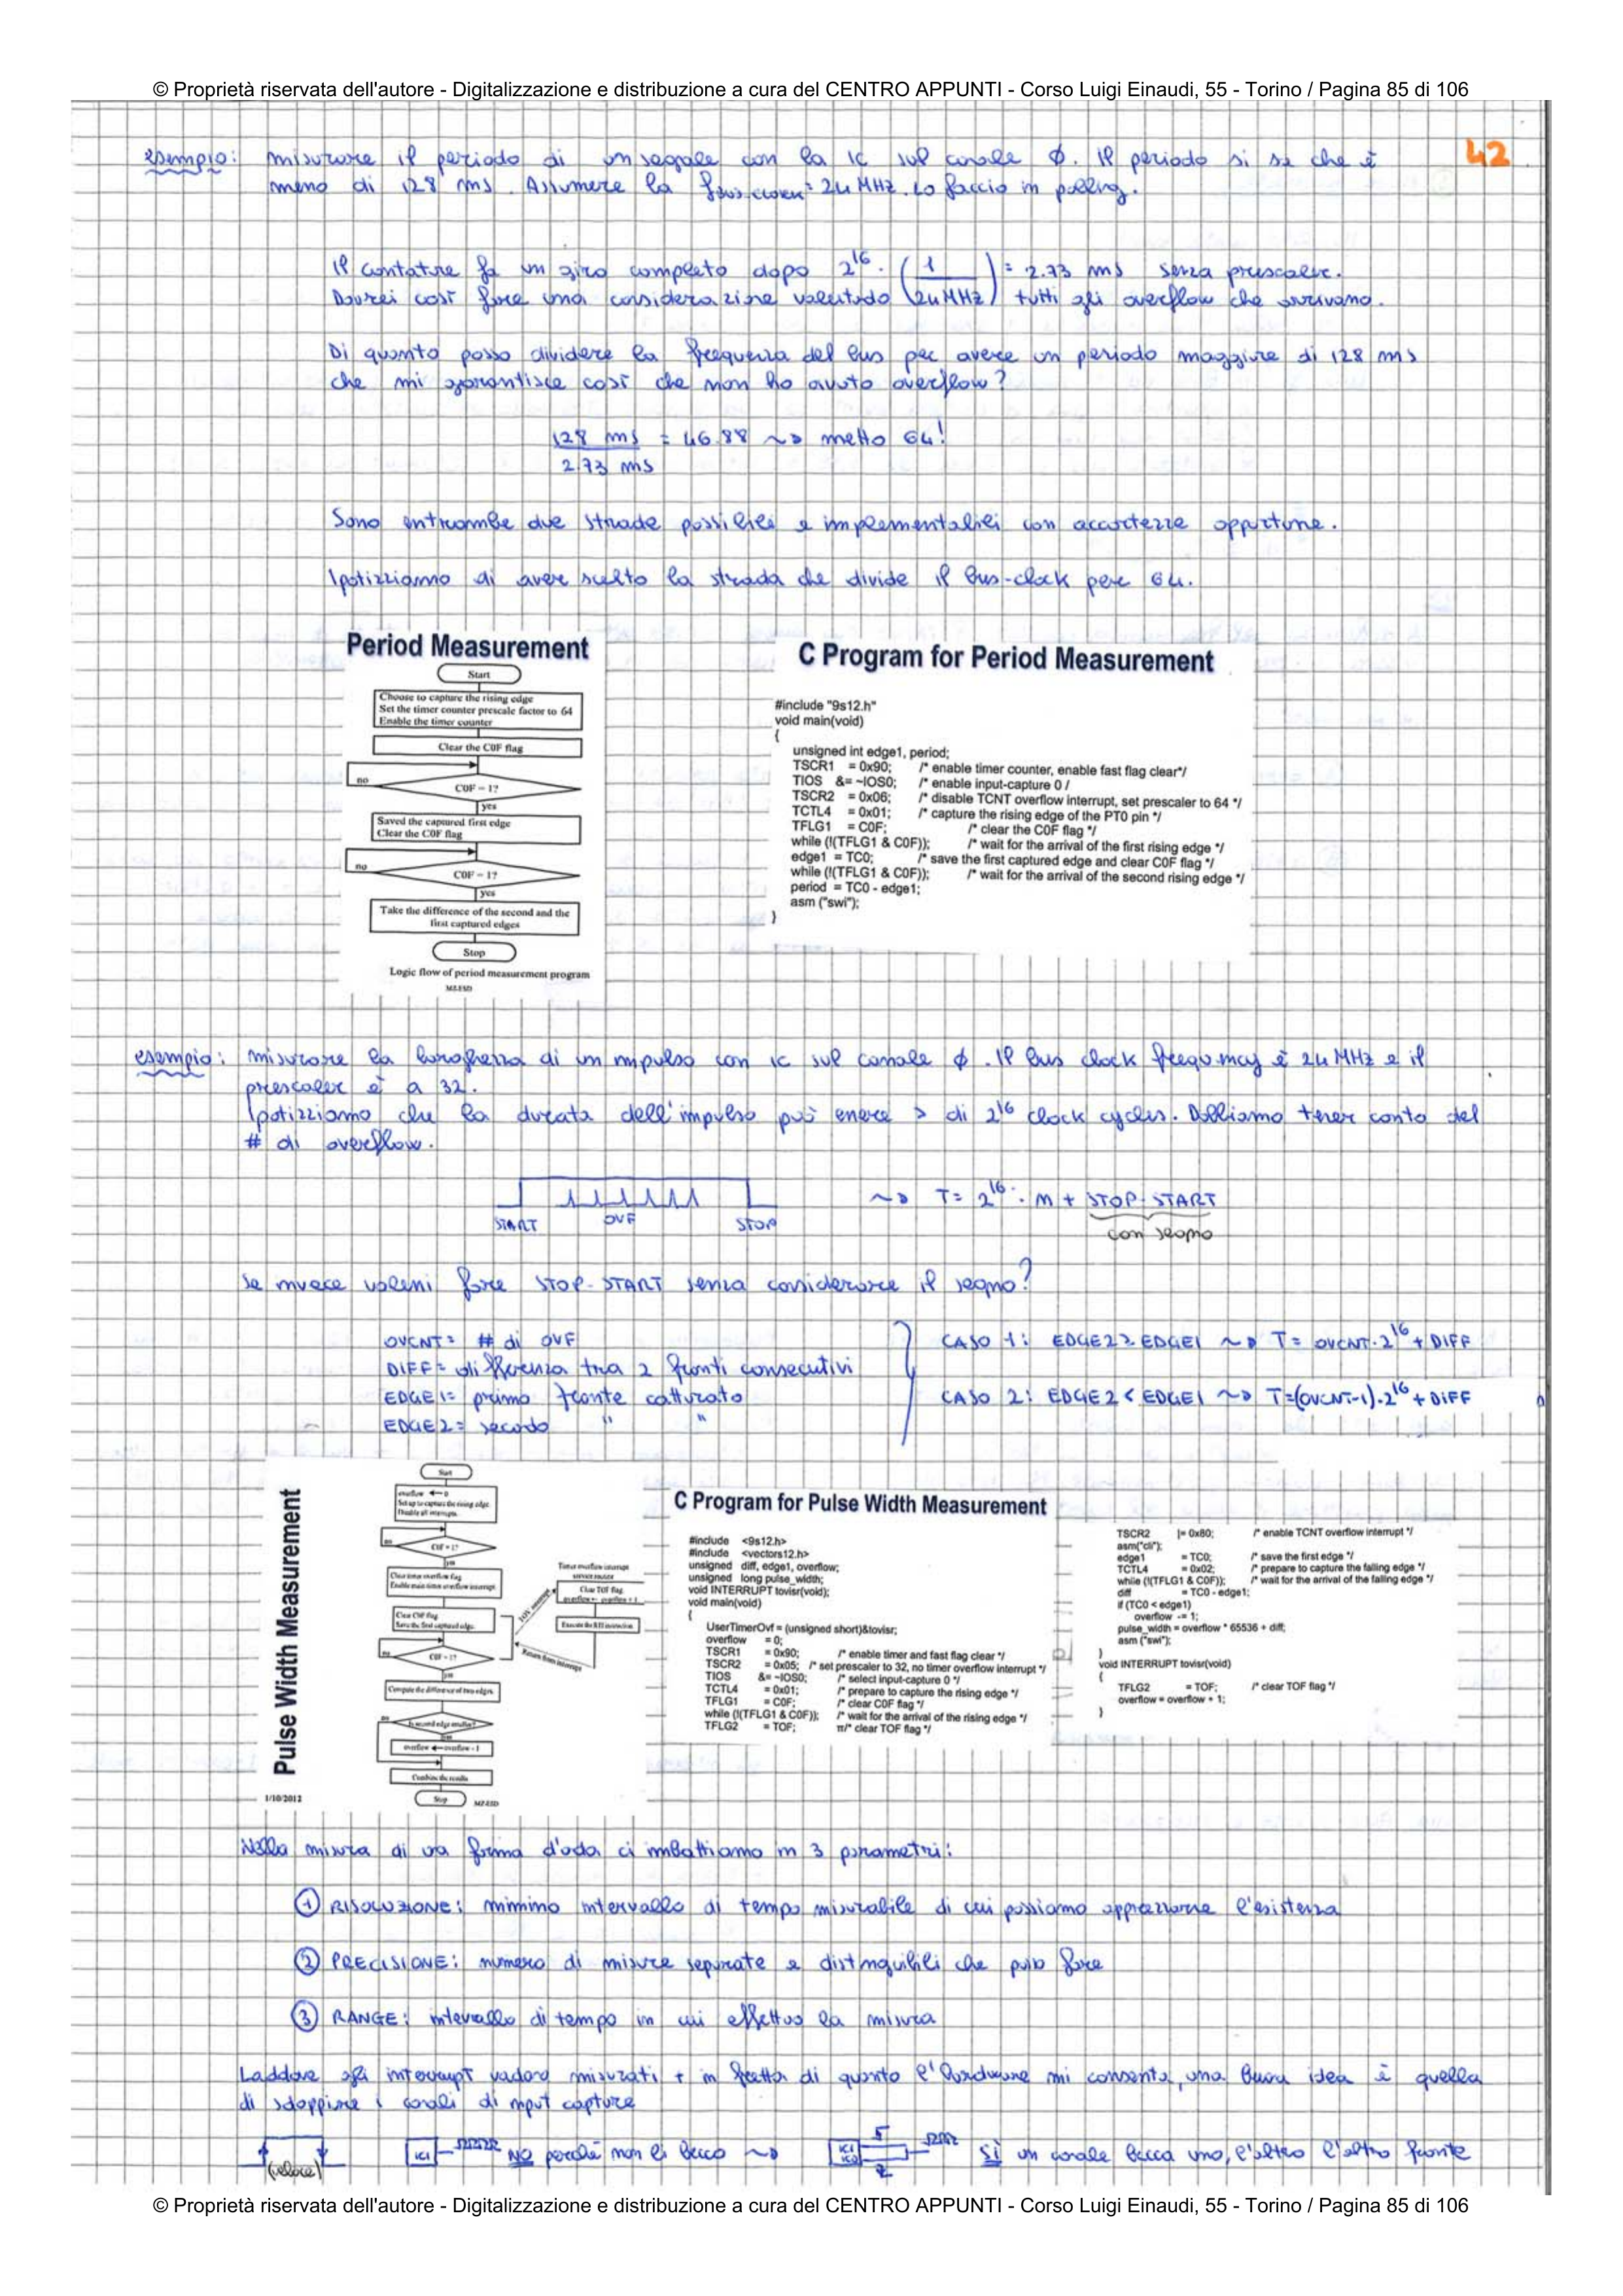 © Proprietà riservata dell'autore - Digitalizzazione e distribuzione a cura del CENTRO APPUNTI - Corso Luigi Einaudi, 55 - Torino / Pagina 85 di 106
42
esempio: misurare il periodo di un segnale con la IC sul canale Ø. Il periodo si sa che è
meno di 128 ms. Assumere la fbus-clock = 24 MHz. Lo faccio in polling.
Il contatore fa un giro completo dopo 2^16 · (1 / 24 MHz) = 2.73 ms senza prescaler.
Dovrei così fare una considerazione valutando tutti gli overflow che arrivano.
Di quanto posso dividere la frequenza del bus per avere un periodo maggiore di 128 ms
che mi garantisce così che non ho avuto overflow?
128 ms / 2.73 ms = 46.88 ~> metto 64!
Sono entrambe due strade possibili e implementabili con accortezze opportune.
Ipotizziamo di aver scelto la strada che divide il bus-clock per 64.
Period Measurement
Start
Choose to capture the rising edge
Set the timer counter prescale factor to 64
Enable the timer counter
Clear the C0F flag
no
C0F = 1?
yes
Saved the captured first edge
Clear the C0F flag
no
C0F = 1?
yes
Take the difference of the second and the
first captured edges
Stop
Logic flow of period measurement program
C Program for Period Measurement
#include "9s12.h"
void main(void)
{
unsigned int edge1, period;
TSCR1 = 0x90; /* enable timer counter, enable fast flag clear*/
TIOS &= ~IOS0; /* enable input-capture 0 /
TSCR2 = 0x06; /* disable TCNT overflow interrupt, set prescaler to 64 */
TCTL4 = 0x01; /* capture the rising edge of the PT0 pin */
TFLG1 = C0F; /* clear the C0F flag */
while (!(TFLG1 & C0F)); /* wait for the arrival of the first rising edge */
edge1 = TC0; /* save the first captured edge and clear C0F flag */
while (!(TFLG1 & C0F)); /* wait for the arrival of the second rising edge */
period = TC0 - edge1;
asm ("swi");
}
esempio: misurare la larghezza di un impulso con IC sul canale Ø. Il bus clock frequency è 24 MHz e il
prescaler è a 32.
Ipotizziamo che la durata dell'impulso può essere > di 2^16 clock cycles. Dobbiamo tener conto del
# di overflow.
START OVF STOP
~> T = 2^16 · m + STOP - START
con segno
Se invece volessi fare STOP - START senza considerare il segno?
OVCNT = # di OVF
DIFF = differenza tra 2 fronti consecutivi
EDGE1 = primo fronte catturato
EDGE2 = secondo " "
CASO 1: EDGE2 ≥ EDGE1 ~> T = OVCNT · 2^16 + DIFF
CASO 2: EDGE2 < EDGE1 ~> T = (OVCNT-1) · 2^16 + DIFF
Pulse Width Measurement
Start
overflow ← 0
Set up to capture the rising edge
Disable all interrupts
C0F = 1?
yes
Clear timer overflow flag
Enable main timer overflow interrupt
Clear C0F flag
Save the first captured edge
no
C0F = 1?
yes
Compute the difference of two edges
no
Is second edge smaller?
overflow ← overflow - 1
Combine the results
Stop
Timer overflow interrupt
service routine
Clear TOF flag
overflow ← overflow + 1
Execute the RTI instruction
Return from interrupt
1/10/2012
C Program for Pulse Width Measurement
#include <9s12.h>
#include <vectors12.h>
unsigned diff, edge1, overflow;
unsigned long pulse_width;
void INTERRUPT tovisr(void);
void main(void)
{
UserTimerOvf = (unsigned short)&tovisr;
overflow = 0;
TSCR1 = 0x90; /* enable timer and fast flag clear */
TSCR2 = 0x05; /* set prescaler to 32, no timer overflow interrupt */
TIOS &= ~IOS0; /* select input-capture 0 */
TCTL4 = 0x01; /* prepare to capture the rising edge */
TFLG1 = C0F; /* clear C0F flag */
while (!(TFLG1 & C0F)); /* wait for the arrival of the rising edge */
TFLG2 = TOF; π/* clear TOF flag */
TSCR2 |= 0x80; /* enable TCNT overflow interrupt */
asm("cli");
edge1 = TC0; /* save the first edge */
TCTL4 = 0x02; /* prepare to capture the falling edge */
while (!(TFLG1 & C0F)); /* wait for the arrival of the falling edge */
diff = TC0 - edge1;
if (TC0 < edge1)
overflow -= 1;
pulse_width = overflow * 65536 + diff;
asm ("swi");
}
void INTERRUPT tovisr(void)
{
TFLG2 = TOF; /* clear TOF flag */
overflow = overflow + 1;
}
Nella misura di una forma d'onda ci imbattiamo in 3 parametri:
① RISOLUZIONE: minimo intervallo di tempo misurabile di cui possiamo apprezzarne l'esistenza
② PRECISIONE: numero di misure separate e distinguibili che può fare
③ RANGE: intervallo di tempo in cui effettuo la misura
Laddove gli interrupt vadano misurati + in fretta di quanto l'hardware mi consenta, una buona idea è quella
di sdoppiare i canali di input capture
(veloce) IC1 NO perché non li becco ~> IC1 IC2 SÌ un canale becca uno, l'altro l'altro fronte
© Proprietà riservata dell'autore - Digitalizzazione e distribuzione a cura del CENTRO APPUNTI - Corso Luigi Einaudi, 55 - Torino / Pagina 85 di 106